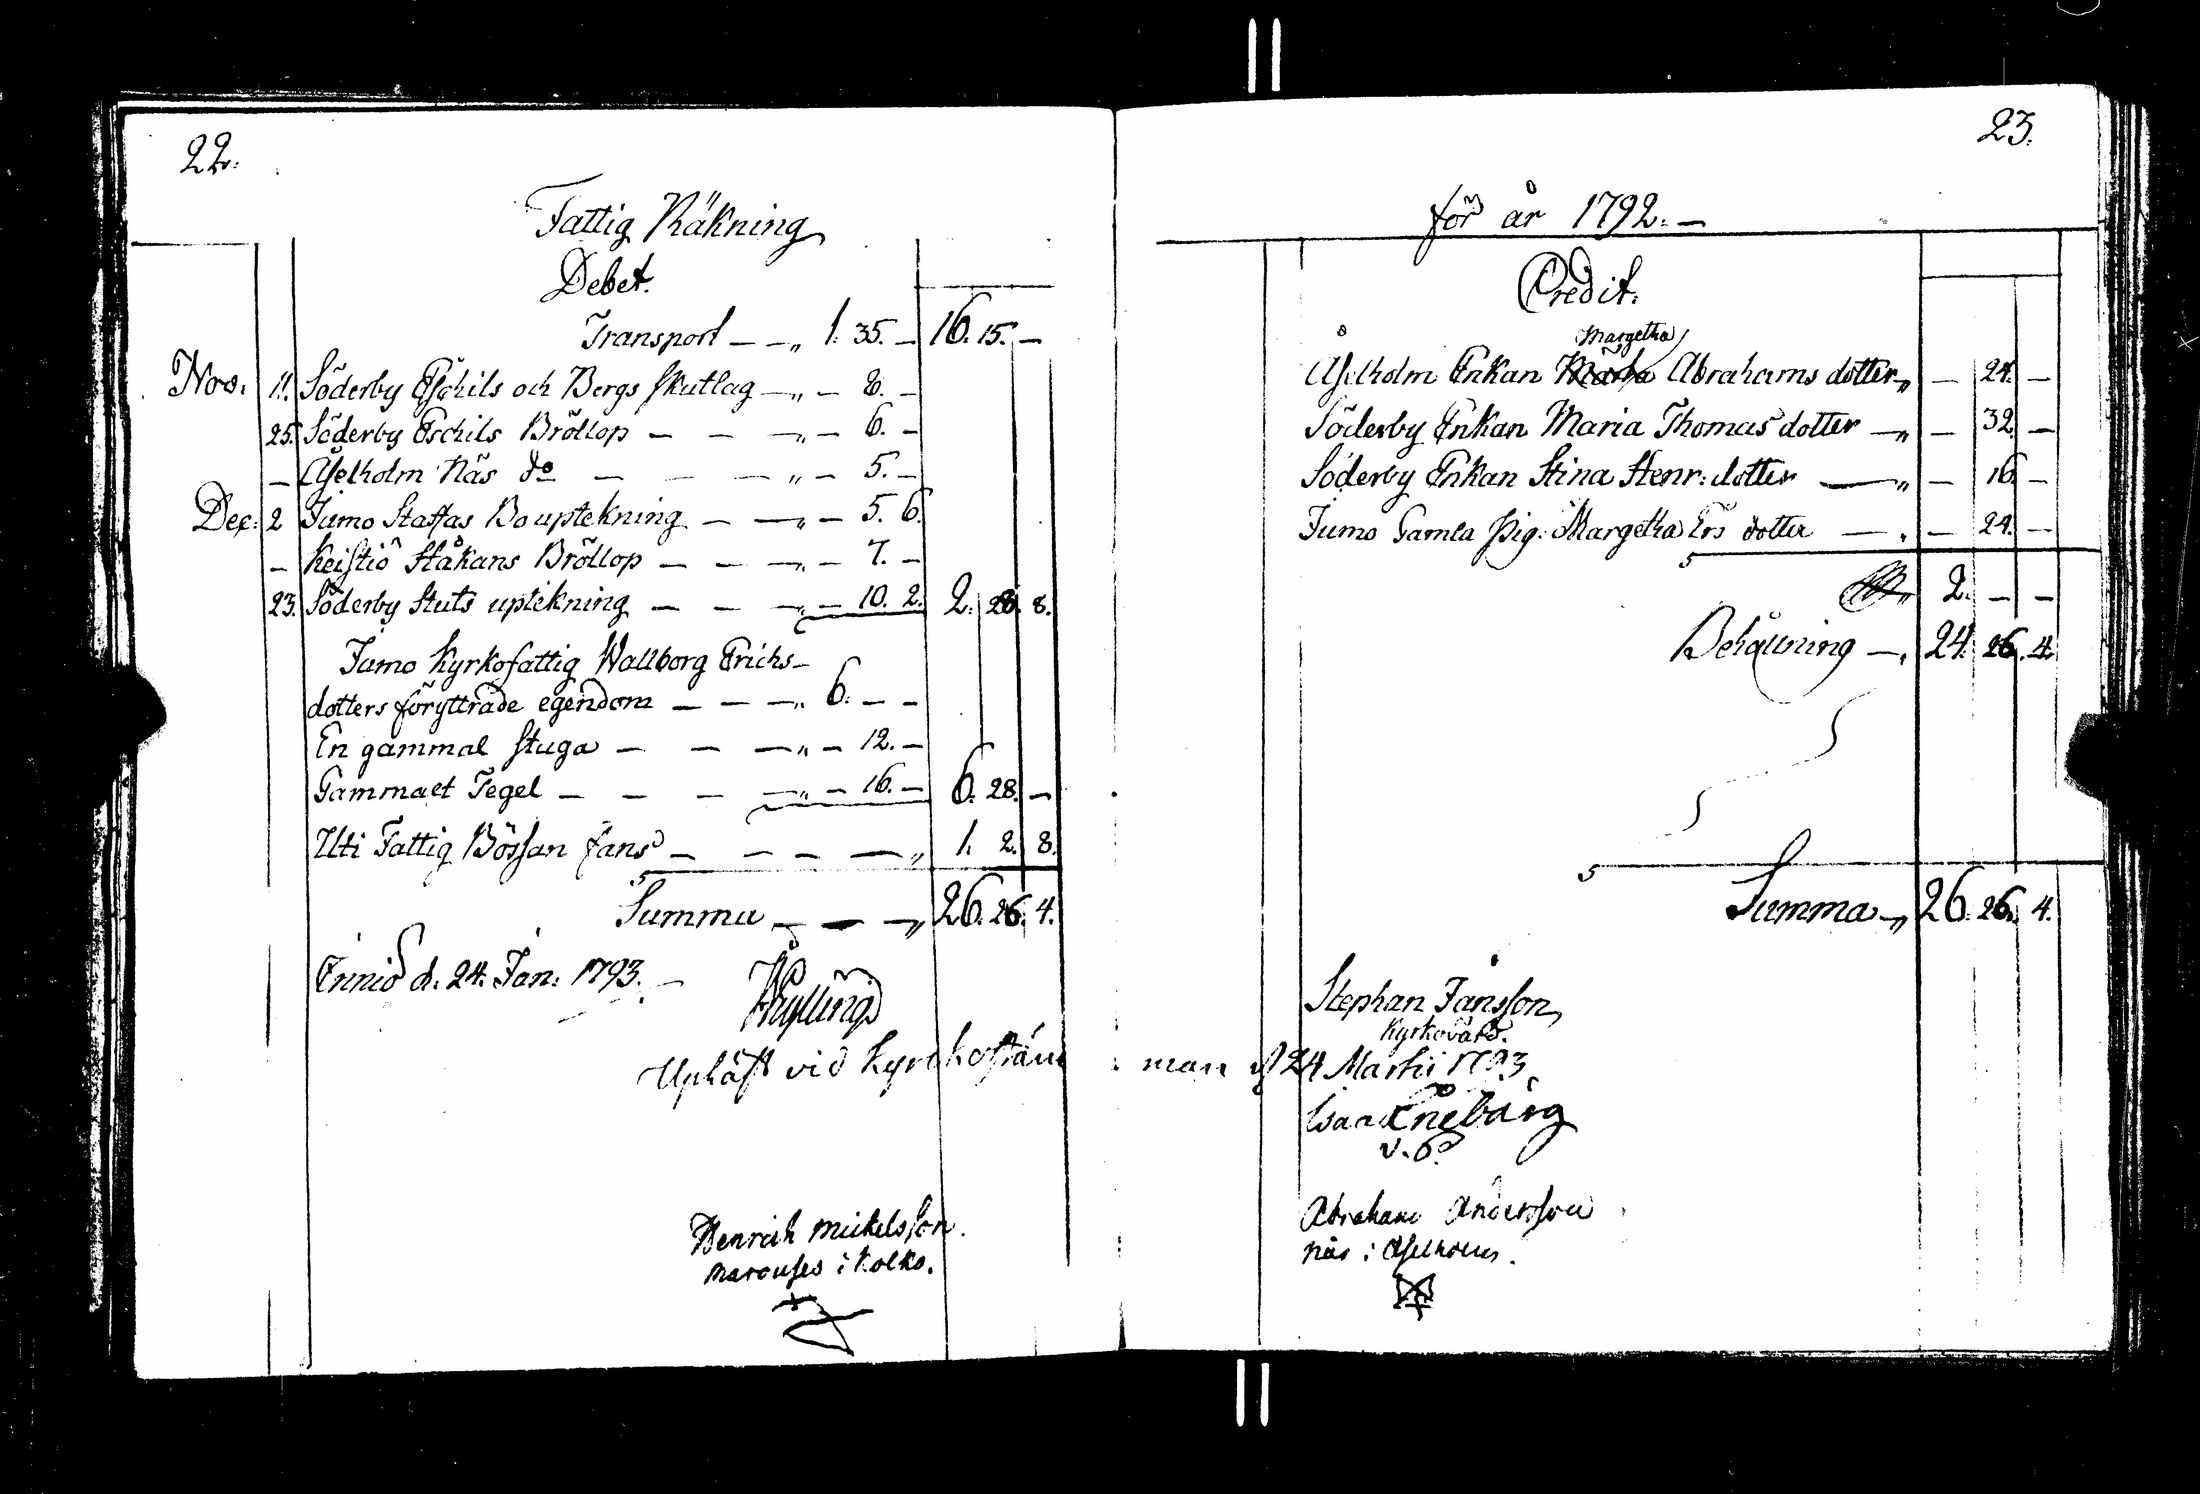 22.
Fattig Räkning
Debet.
Transport — — „ 1. 35. — 16. 15. —
Nov. 11. Söderby Eschils och Bergs skutlag — „ — 8. —
25. Söderby Eschils Bröllop — — — „ — 6. —
— Åselholm Näs do — — — „ — 5. —
Dec: 2 Jumo Staffas Bouptekning — — „ — 5. 6.
— Keistiö Stäkans Bröllop — — — „ — 7. —
23. Söderby Stuts uptekning — — — „ — 10. 2. 2. 28. 8.
Jumo Kyrkofattig Wallborg Erichs-
dotters föryttrade egendom — — — „ 6. — —
En gammal stuga — — — „ — 12. —
Gammalt Tegel — — — — „ — 16. — 6. 28. —
Uti Fattig Bössan fans — — — — „ 1. 2. 8.
Summa — — — „ 26. 26. 4.
Innio d. 24. Jan: 1793. —
23.
för år 1792. —
Credit.
Margetha
Åselholm Enkan Maria Abrahams dotter „ — 24. —
Söderby Enkan Maria Thomas dotter — „ — 32. —
Söderby Enkan Stina Henr: dotter — „ — 16. —
Jumo Gamla Pig: Margetha Ers dotter — „ — 24. —
„ 2. — —
Behållning — „ 24. 26. 4.
Summa — „ 26. 26. 4.
Stephan Jansson
Kyrkovärd.
Upläst vid Kyrckostämman d 24 Martii 1793
Isaac Enebärg
v. P.
Henrich Mickelsson.
Marcuses i Kolko.
Abraham Andersson
Näs i Åselholm.